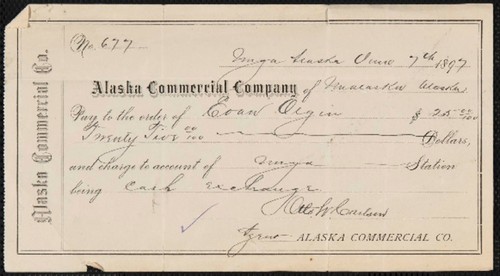 Alaska Commercial Co.
No. 677
Unga Alaska June 7th 1897
Alaska Commercial Company of Unalaska Alaska
Pay to the order of Evan Orgin $ 25 00/100
Twenty Five 00/100 Dollars,
and charge to account of Unga Station
being Cash exchange
Otto W Carlson
Agent ALASKA COMMERCIAL CO.